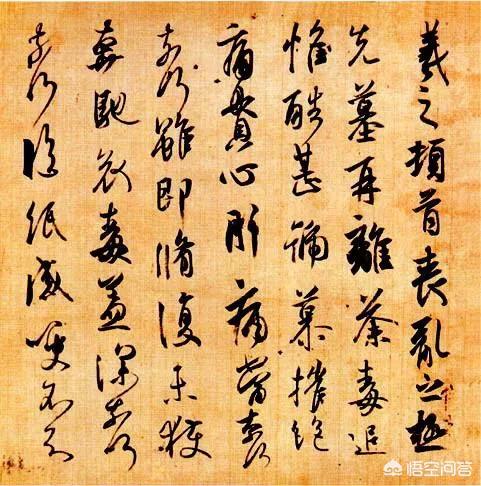 羲之頓首喪亂之極
先墓再離荼毒追
惟酷甚號慕摧絶
痛貫心肝痛當奈何
奈何雖即脩復未獲
奔馳哀毒益深奈何
奈何臨紙感哽不知
悟空问答